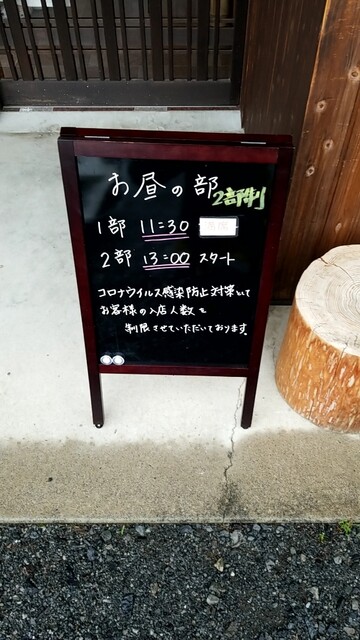 お昼の部 2部制
1部 11:30
2部 13:00 スタート
コロナウイルス感染防止対策として
お客様の入店人数を
制限させていただいております。